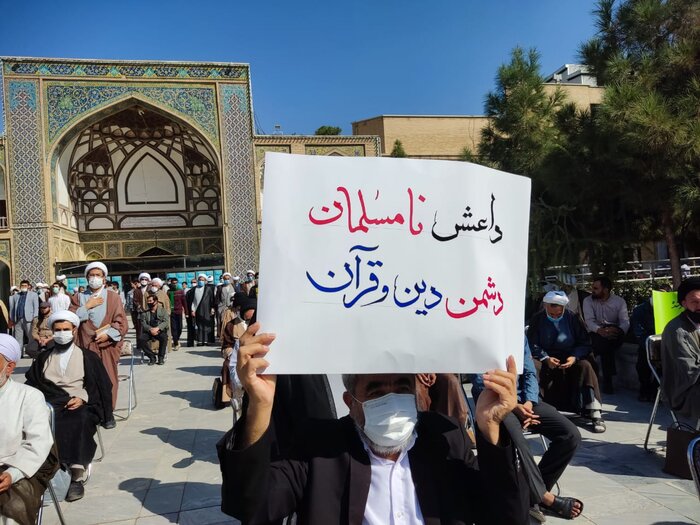 داعش نا مسلمان
دشمن دین و قرآن